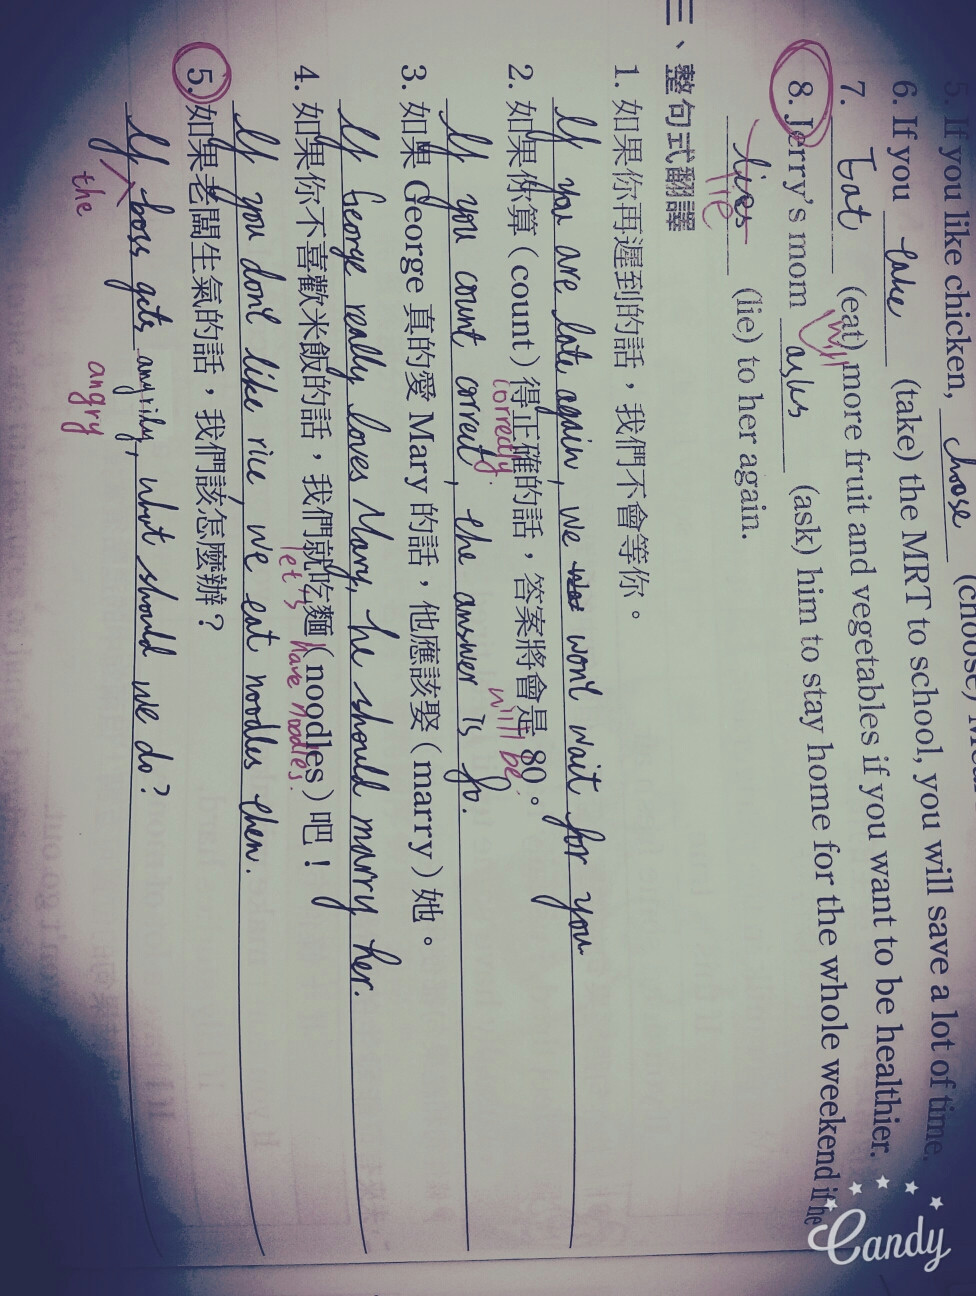 5. If you like chicken, choose (choose)
6. If you take (take) the MRT to school, you will save a lot of time.
7. Eat (eat) more fruit and vegetables if you want to be healthier.
8. Jerry's mom asks (ask) him to stay home for the whole weekend if he
will
lies (lie) to her again.
lie
三、整句式翻譯
1. 如果你再遲到的話，我們不會等你。
If you are late again, we won't wait for you
2. 如果你算（count）得正確的話，答案將會是 80。
correctly will be
If you count correct, the answer is 80.
3. 如果 George 真的愛 Mary 的話，他應該娶（marry）她。
If George really loves Mary, he should marry her.
4. 如果你不喜歡米飯的話，我們就吃麵（noodles）吧！
let's have noodles.
If you don't like rice, we eat noodles then.
5. 如果老闆生氣的話，我們該怎麼辦？
If boss gets angrily, what should we do?
the angry
Candy